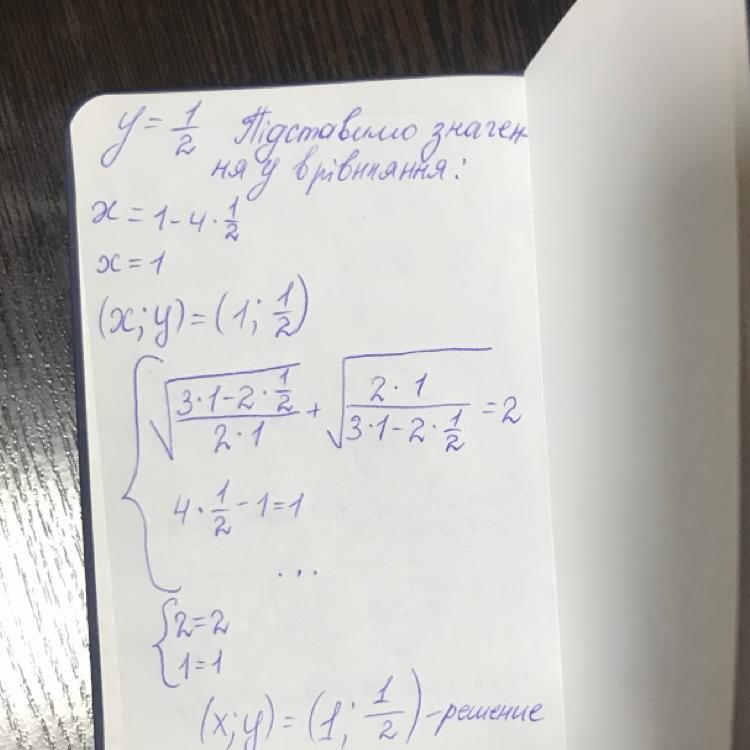 y = 1/2 Підставимо значен-
ня y в рівняння:
x = 1 - 4 · 1/2
x = 1
(x; y) = (1; 1/2)
{ √((3·1 - 2·1/2)/(2·1)) + √((2·1)/(3·1 - 2·1/2)) = 2
4 · 1/2 - 1 = 1
...
{ 2 = 2
1 = 1
(x; y) = (1; 1/2) - решение